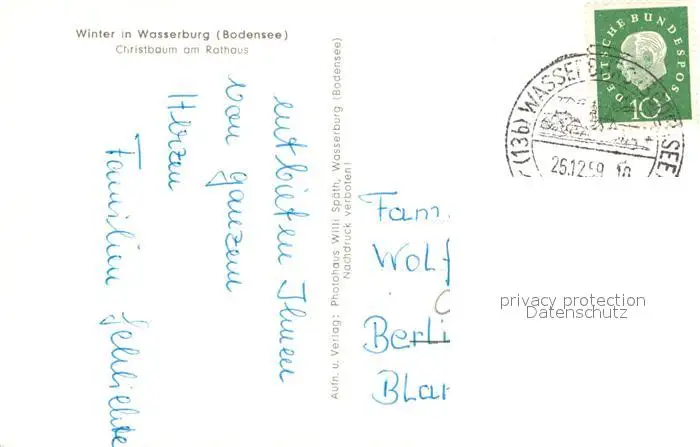 Winter in Wasserburg (Bodensee)
Christbaum am Rathaus
entbieten Ihnen
von ganzem
Herzen
Familien
Aufn. u. Verlag: Photohaus Willi Späth, Wasserburg (Bodensee)
Nachdruck verboten!
DEUTSCHE BUNDESPOST
10
(13b) WASSERBURG (BODENSEE)
25.12.59
Fam.
Wolf
Berli
Blan
privacy protection
Datenschutz